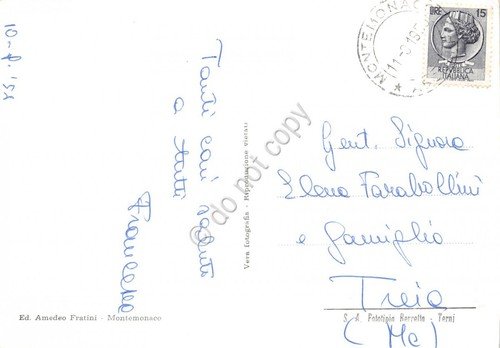 10-8-'58
Tanti cari saluti
a tutti
Ed. Amedeo Fratini - Montemonaco
Vera fotografia - Riproduzione vietata
© do not copy
MONTEMONACO
LIRE 15
REPUBBLICA
ITALIANA
Gent. Signora
Elena Farabollini
e famiglia
Treia
S. A. Fototipia Berretta - Terni
(Mc)